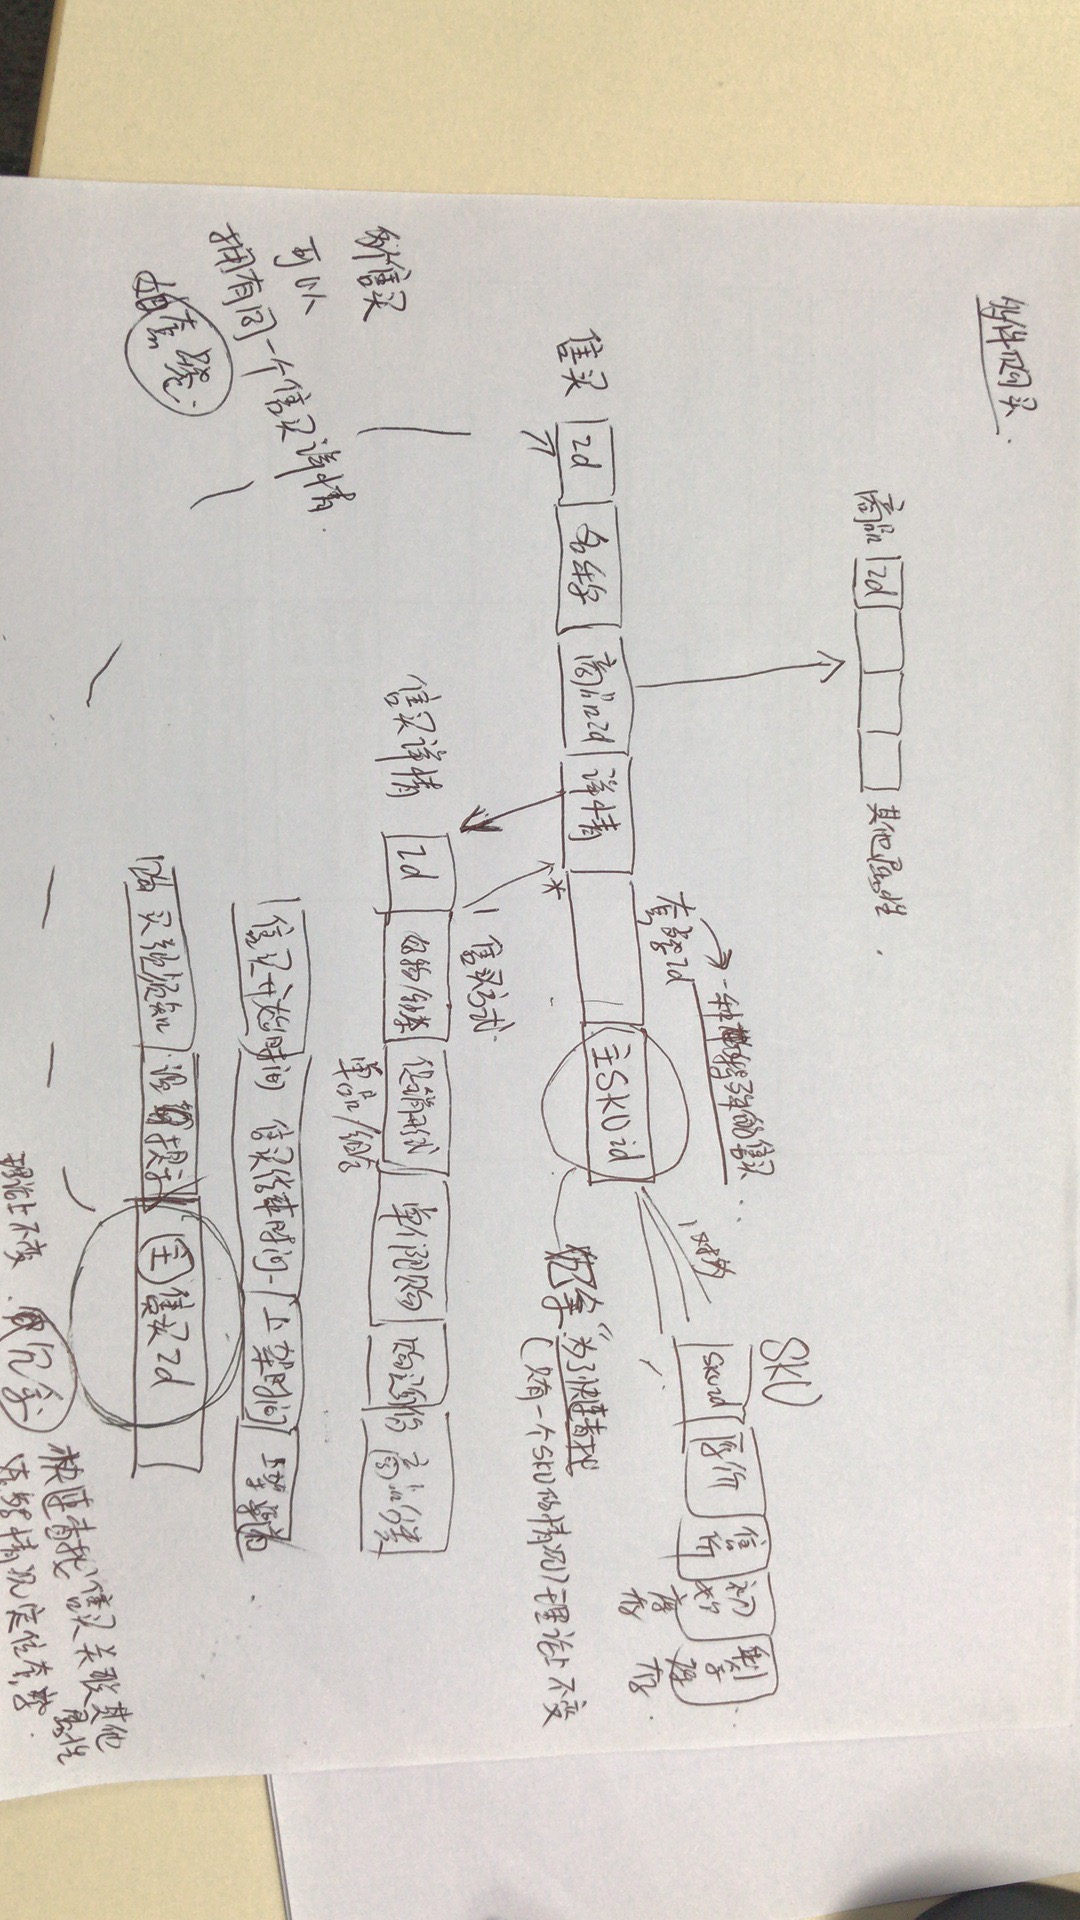 多件购买.
商品 Id 其他属性.
SKU
SKUid 原价 售价 初始库存 剩余库存
1对多
→一种特殊的售买
套餐Id
售买 Id 名称 商品Id 详情 主SKUid
冗余"为了快速查找
(只有一个SKU的情况) 理论上不变
* 1
售买方式
售买详情 Id 好物/ 促销形式 单个限购 商品分类
单品/组合
售买开始时间 售买结束时间 上架时间 上架渠道
购买须知 温馨提示 主售买Id
多个售买
可以
拥有同一个售买详情.
如套餐.
理论上不变. 冗余
快速查找 售买关联其他属性
情况定位套餐.